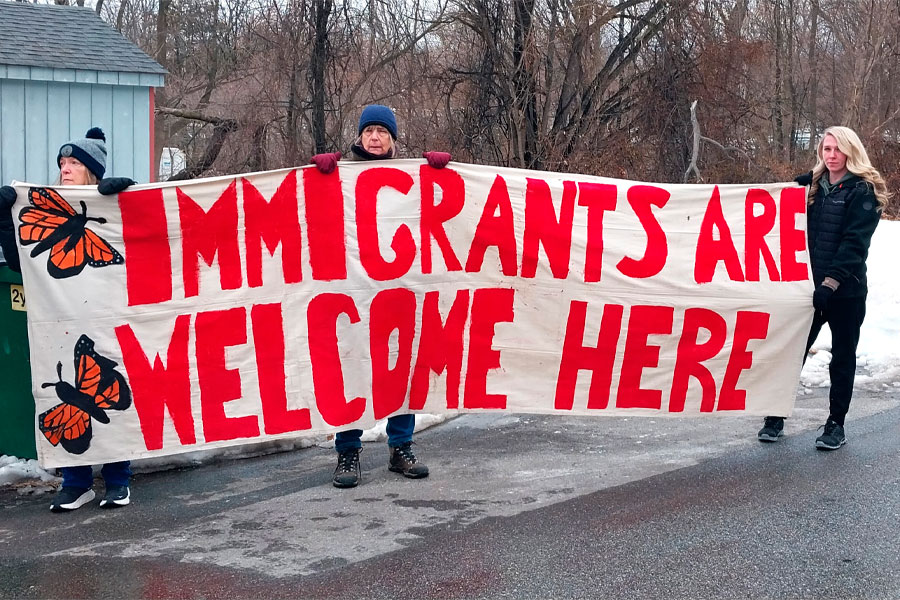 IMMIGRANTS ARE
WELCOME HERE
2y